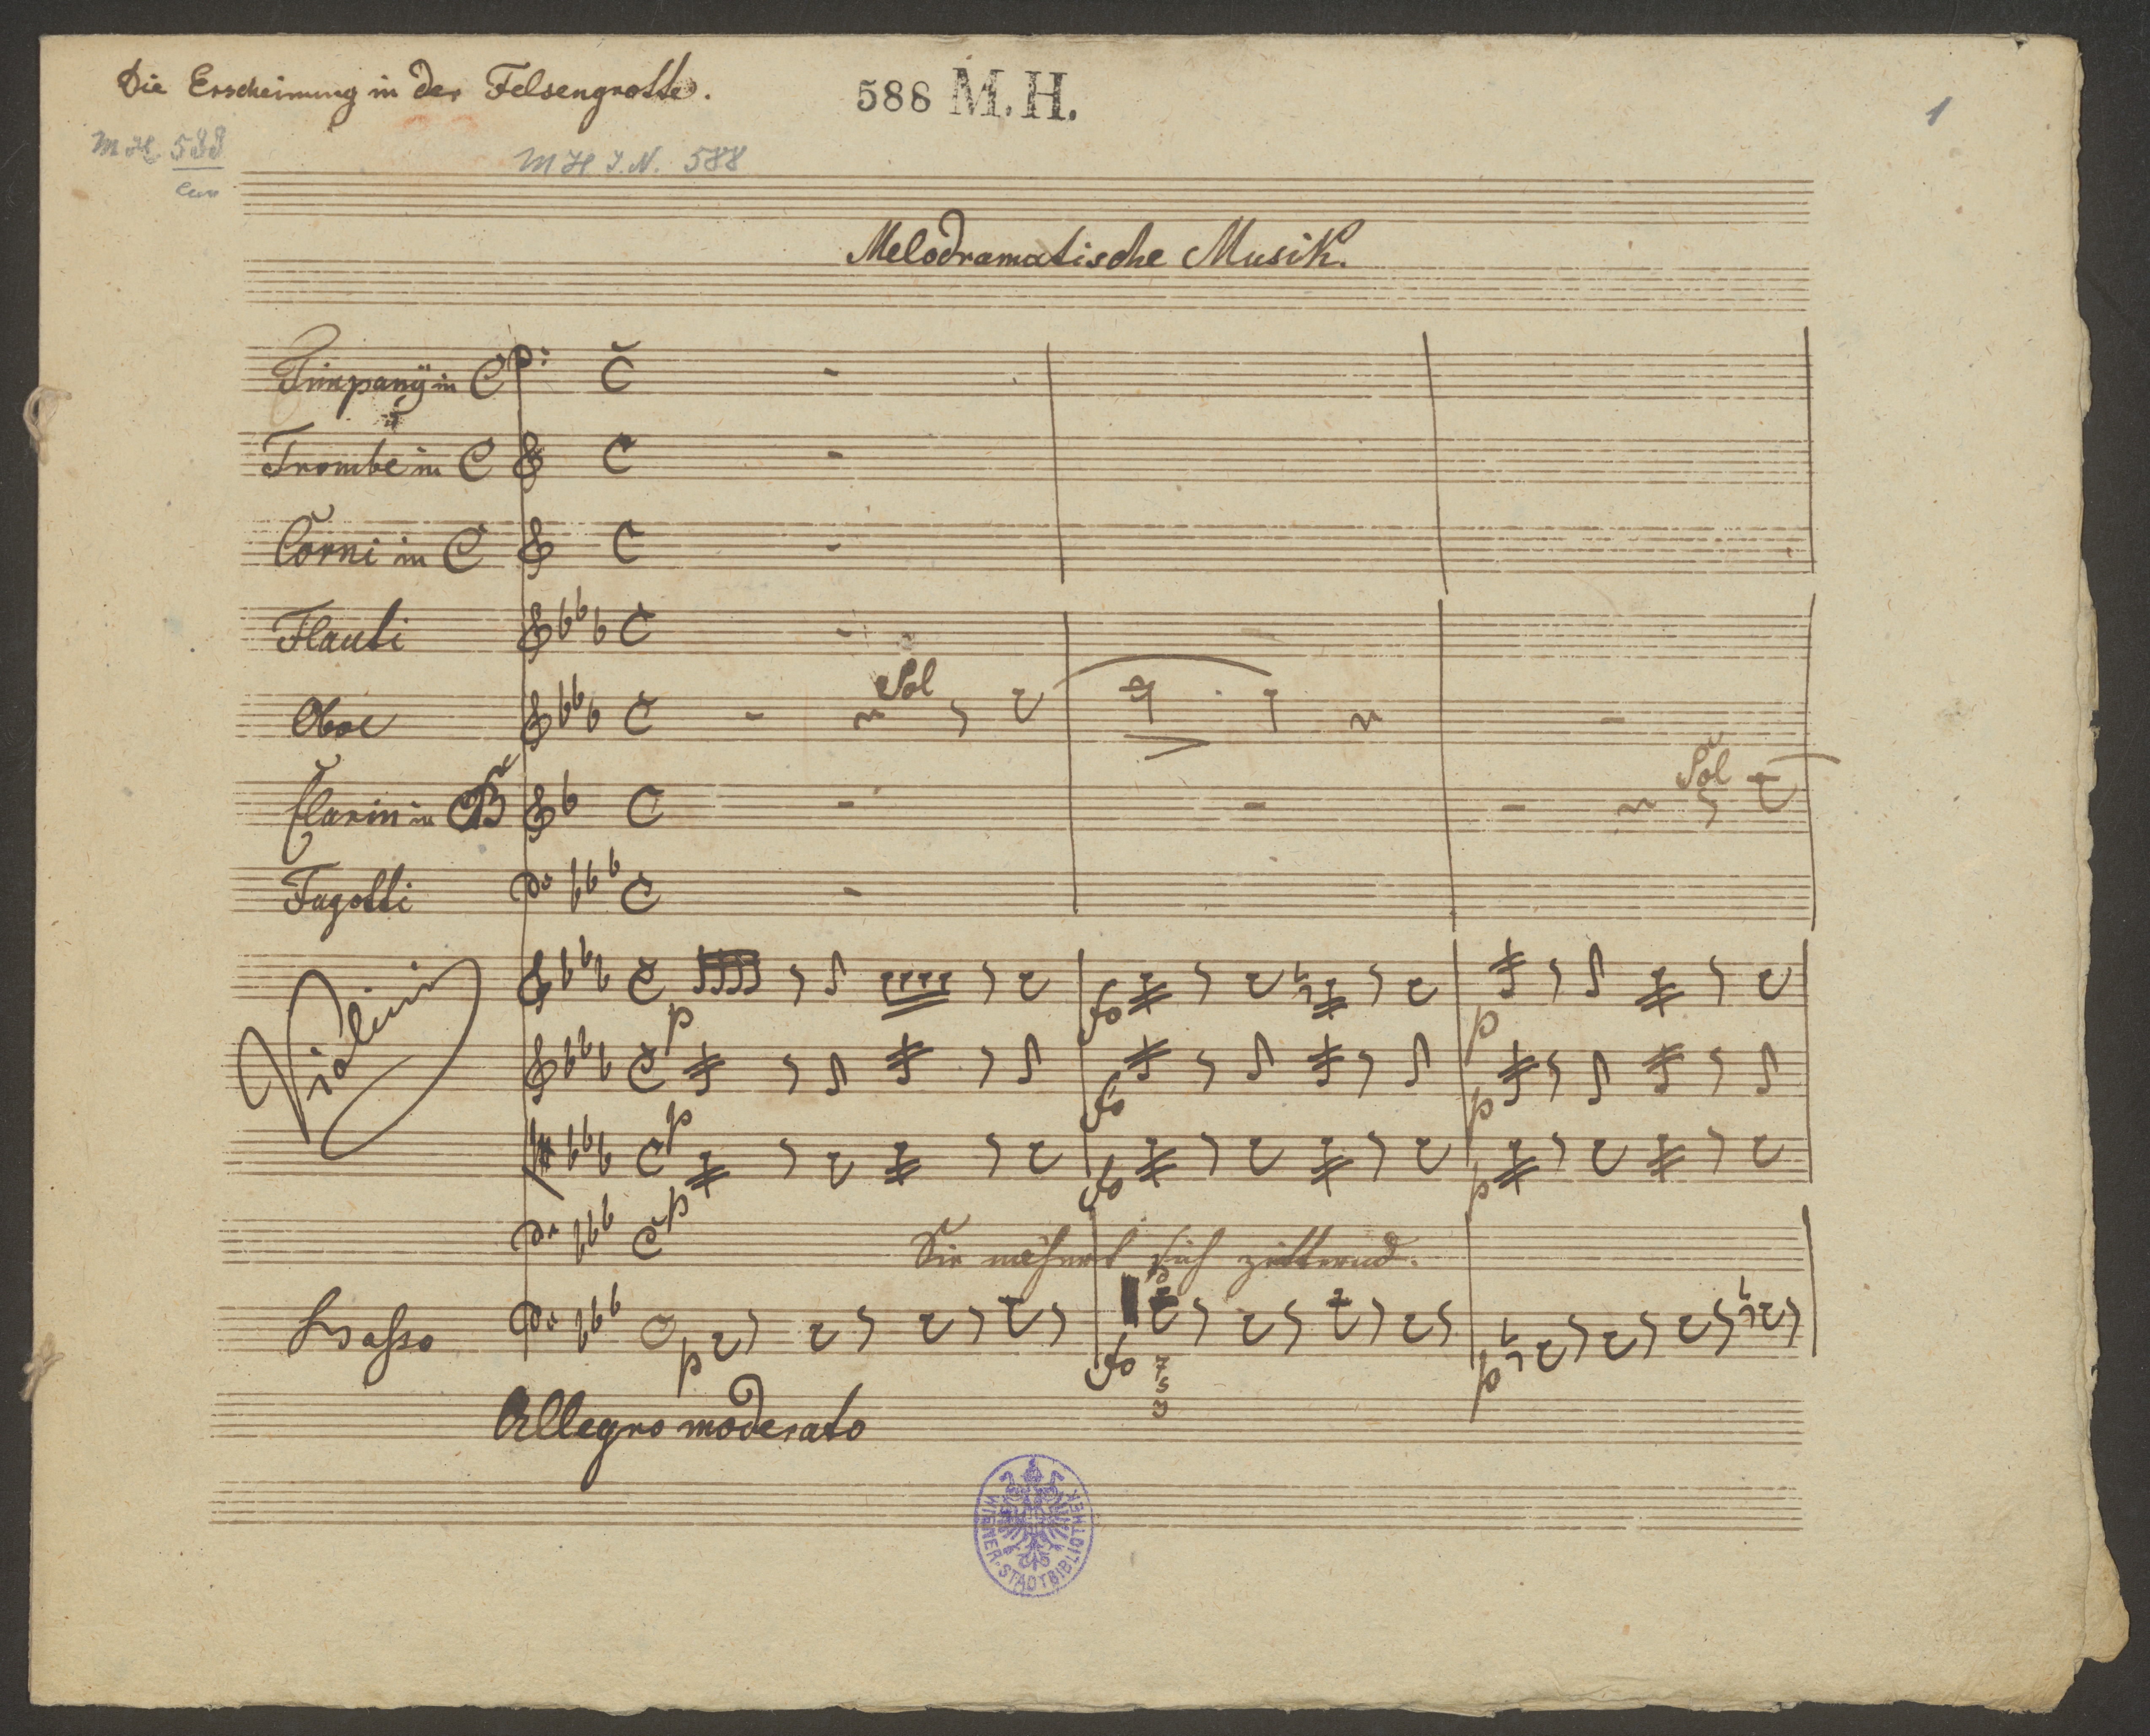 Die Erscheinung in der Felsengrotte.
588 M. H.
1
M H 588
M H I. N. 588
Melodramatische Musik.
Timpany in C
Trombe in C
Corni in C
Flauti
Sol
Oboe
Sol
Clarin in B
Fagotti
Violini
p
fo
p
p
fo
p
p
fo
p
Sie nähert sich zitternd.
Basso
p
fo
p
7
5
3
Allegro moderato
WIENER · STADTBIBLIOTHEK